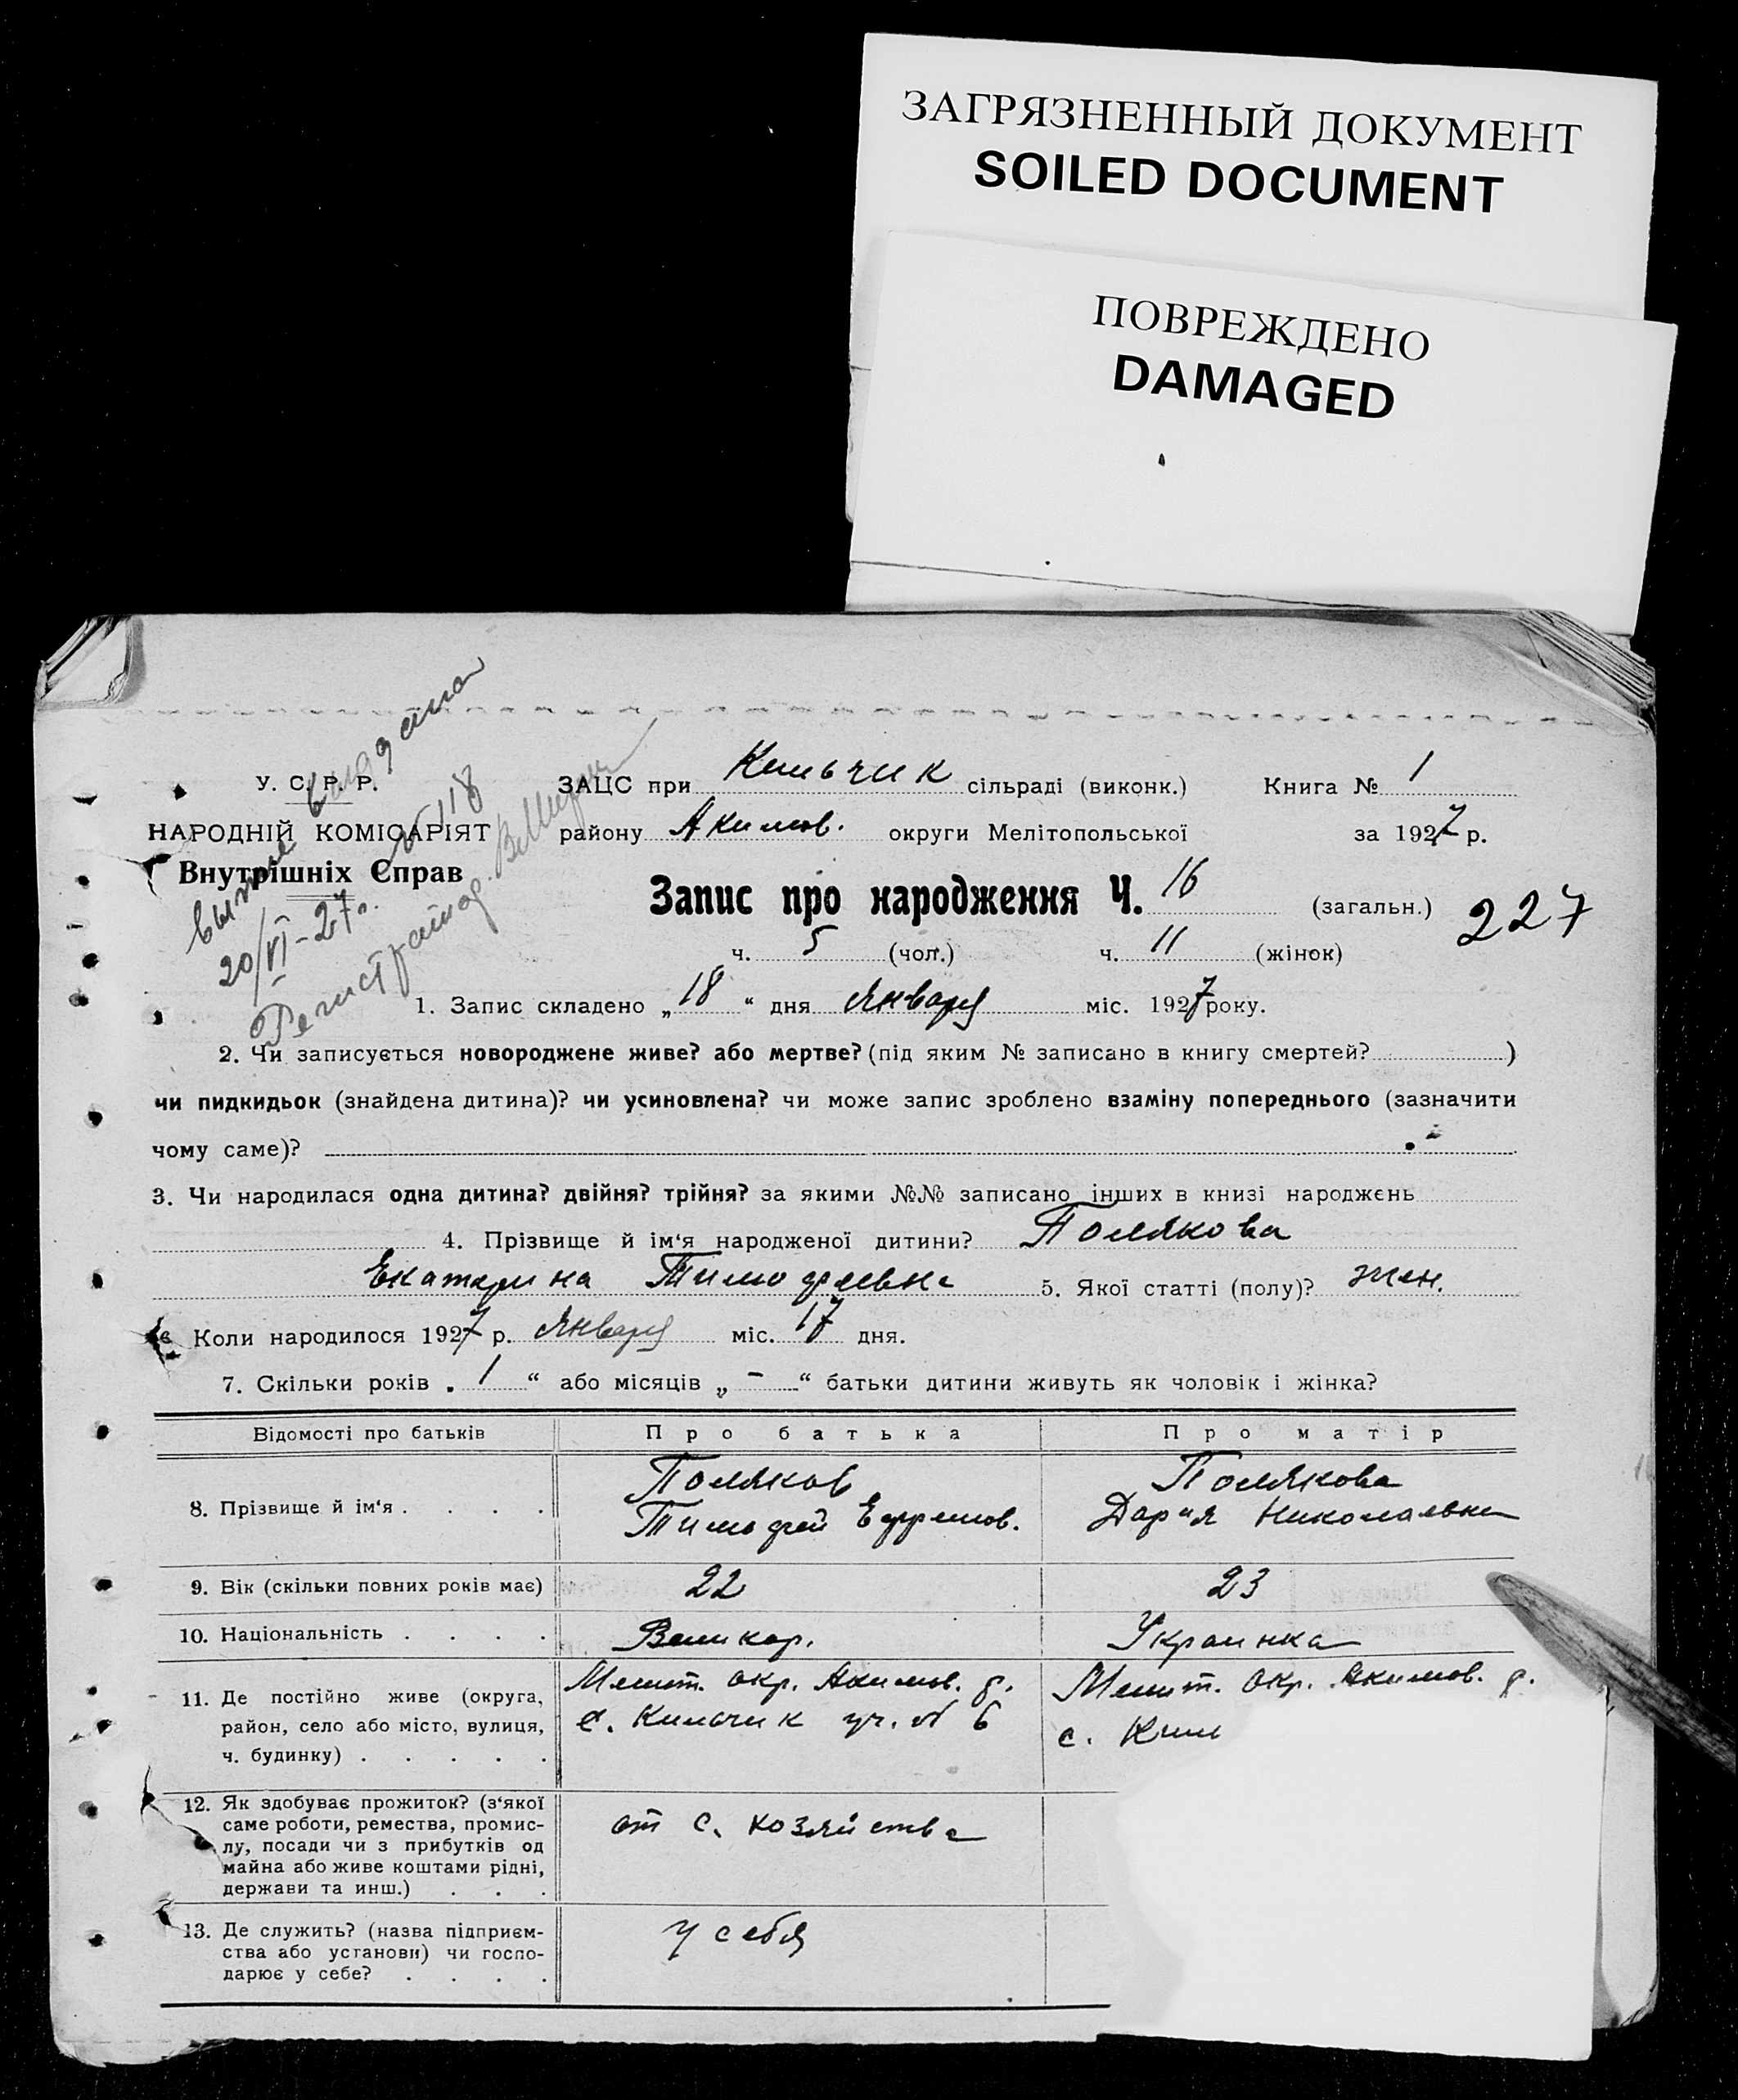 ЗАГРЯЗНЕННЫЙ ДОКУМЕНТ
SOILED DOCUMENT
ПОВРЕЖДЕНО
DAMAGED
выпис выдана
20/VI-27г. № 118
Регистратор.
У. С. Р. Р.
НАРОДНІЙ КОМІСАРІЯТ
Внутрішніх Справ
ЗАЦС при Кильчик сільраді (виконк.) Книга № 1
району Акимов. округи Мелітопольської за 1927 р.
Запис про народження Ч. 16 (загальн.) 227
ч. 5 (чол.) ч. 11 (жінок)
1. Запис складено „18“ дня Января міс. 1927 року.
2. Чи записується новороджене живе? або мертве? (під яким № записано в книгу смертей? )
чи пидкидьок (знайдена дитина)? чи усиновлена? чи може запис зроблено взаміну попереднього (зазначити
чому саме)?
3. Чи народилася одна дитина? двійня? трійня? за якими №№ записано інших в книзі народжень
4. Прізвище й ім‘я народженої дитини? Полякова
Екатерина Тимофеевна 5. Якої статті (полу)? жен.
Коли народилося 1927 р. Января міс. 17 дня.
7. Скільки років „1“ або місяців „-“ батьки дитини живуть як чоловік і жінка?
Відомості про батьків Про батька Про матір
8. Прізвище й ім‘я . . . . Поляков Полякова
Тимофей Ефремов. Дария Николаевна
9. Вік (скільки повних років має) 22 23
10. Національність . . . . Великор. Украинка
11. Де постійно живе (округа, Мелит. окр. Акимов. р. Мелит. окр. Акимов. р.
район, село або місто, вулиця, с. Кильчик уч. № 6 с. Кил
ч. будинку) . . . . .
12. Як здобуває прожиток? (з‘якої
саме роботи, ремества, промис-
лу, посади чи з прибутків од от с. хозяйства
майна або живе коштами рідні,
держави та инш.) . . .
13. Де служить? (назва підприєм- у себя
ства або установи) чи госпо-
дарює у себе? . . . .